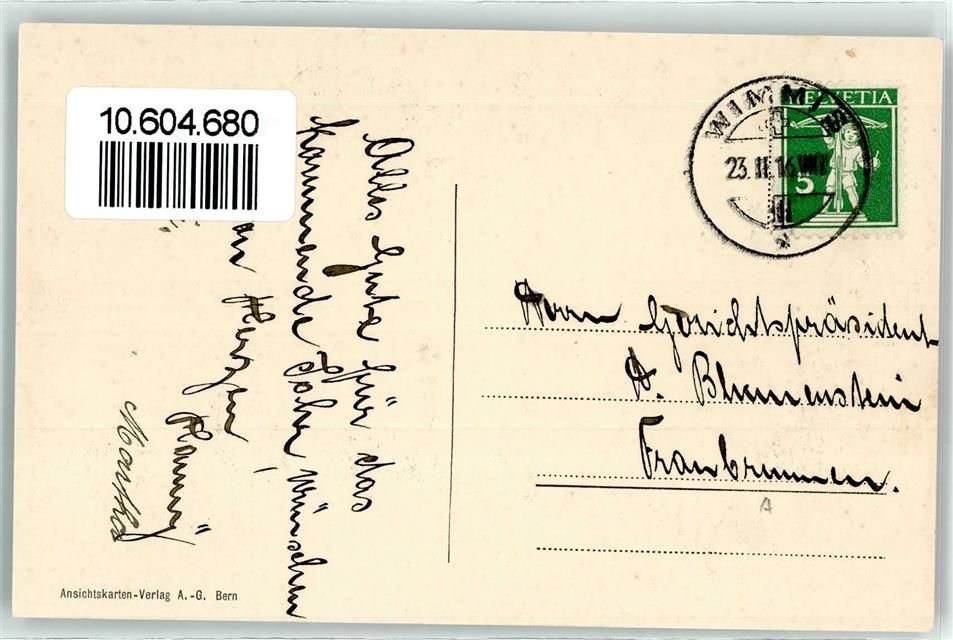 10.604.680
Alles Gute für das
kommende Jahr wünschen
von Herzen
Hanni
Martha
HELVETIA
5
WIMMIS
23.II.16
Herrn Gerichtspräsident
A. Blumenstein
Fraubrunnen.
A
Ansichtskarten-Verlag A.-G. Bern